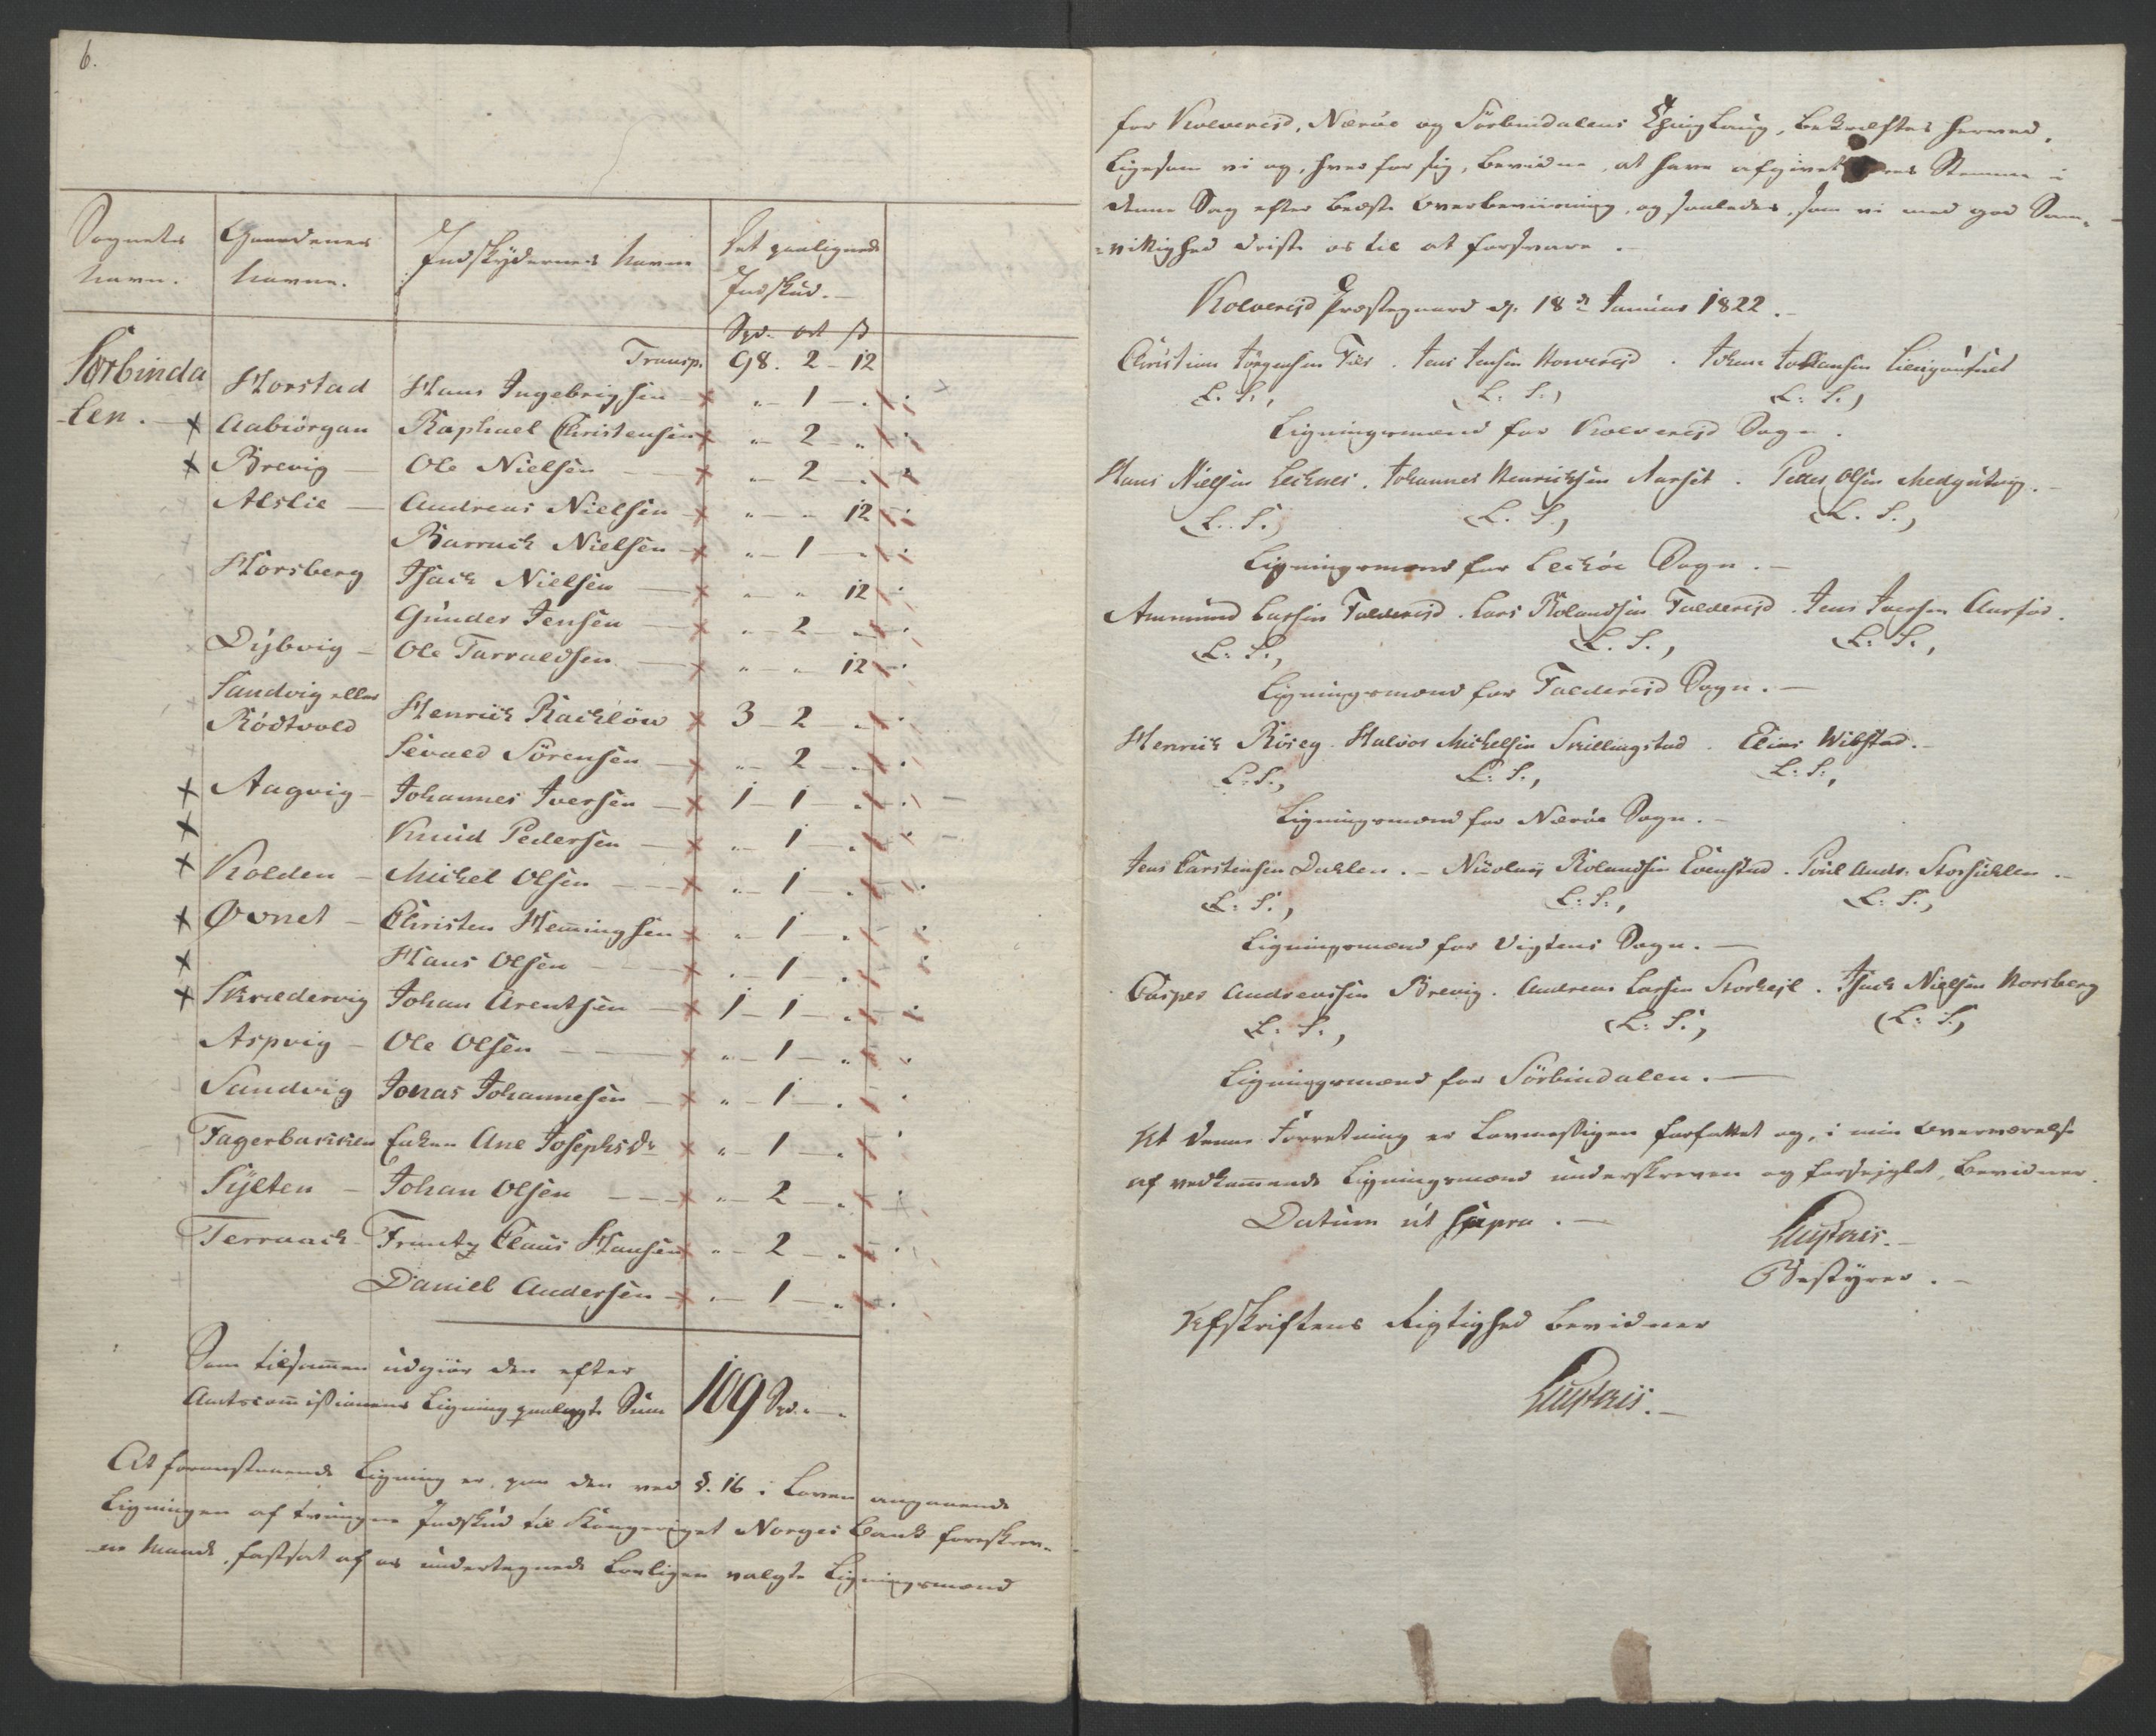 6.
Sognets Navn. Gaardenes Navne. Indskydernes Navne Det paalignede Indskud.
Spd. ort ß
Transp. 98. 2 - 12
Sørbinda Horstad Hans Ingebrigtsen " 1 - "
len. Aabiørgan Raphael Christensen " 2 - "
Brevig Ole Nielsen " 2 - "
Alslie Andreas Nielsen " - " 12
Barrack Nielsen " 1 - "
Horsberg Isack Nielsen " - " 12
Gunder Jensen " 2 - "
Dybvig Ole Tarraldsen " - " 12
Sandvig eller
Rödtvold Henrick Racklöw 3 - 2 - "
Sevald Sörensen " 2 - "
Aagvig Johannes Iversen 1 - 1 - "
Knud Pedersen " 1 - "
Kolden Mickel Olsen " 1 - "
Øvnet Christen Hemmingsen " 1 - "
Hans Olsen " 1 - "
Skredervig Johan Arentsen 1 - 1 - "
Aspvig Ole Olsen " 1 - "
Sandvig Jonas Johannesen " 1 - "
Fagerbakken Enken Ane Josephsdr " 1 - "
Sylten Johan Olsen " 2 - "
Terraack Frantz Claus Hansen " 2 - "
Daniel Andersen " 1 - "
Som tilsammen udgiör den efter
Amtscommissionens Ligning paalagte Sum 109 Spd. -
At foranstaaende Ligning er, paa den ved §. 16 i Loven angaaende
Ligningen af tvungne Indskud til Kongeriget Norges Bank foreskrev-
ne Maade, fastsat af os undertegnede lovligen valgte Ligningsmænd
for Kolvereid, Næröe og Sörbindalens Thinglaug, bekræftes herved,
ligesom vi og, hver for sig, bevidne, at have afgivet Stemme i
denne Sag efter bedste Overbeviisning, og saaledes, som vi med god Sam-
=vittighed driste os til at forsvare.
Kolvereid Præstegaard d. 18de Januar 1822.
Christian Jörgensen Fier. Jens Jensen Horvereid. Johan Johansen
L. S., L. S., L. S.,
Ligningsmænd for Kolvereid Sogn.
Hans Nielsen Leknes. Johannes Henrichsen Aarset. Peder Olsen Medgutvig.
L. S. L. S., L. S.,
Ligningsmænd for Leköe Sogn.
Ammund Larsen Foldereid. Lars Rolandsen Foldereid. Jens Iversen Aarfor.
L. S., L. S., L. S.,
Ligningsmænd for Foldereid Sogn.
Henrick Röseg. Halvor Mickelsen Skillingstad. Elias Wibstad.
L. S., L. S., L. S.,
Ligningsmænd for Næröe Sogn.
Jens Carstensen Dahlen. Nicolay Rolandsen Evenstad. Poul Andr. Storsuhlen.
L. S., L. S., L. S.,
Ligningsmænd for Vigtens Sogn.
Casper Andreassen Brevig. Andreas Larsen Storhejl. Isack Nielsen Horsberg
L. S., L. S., L. S.,
Ligningsmænd for Sörbindalen.
At denne Forretning er lovmæssigen forfattet og, i min Overværelse
af vedkommende Ligningsmænd underskreven og forseiglet, bevidner.
Datum ut supra.
Bestyrer.
Afskriftens Rigtighed bevidner